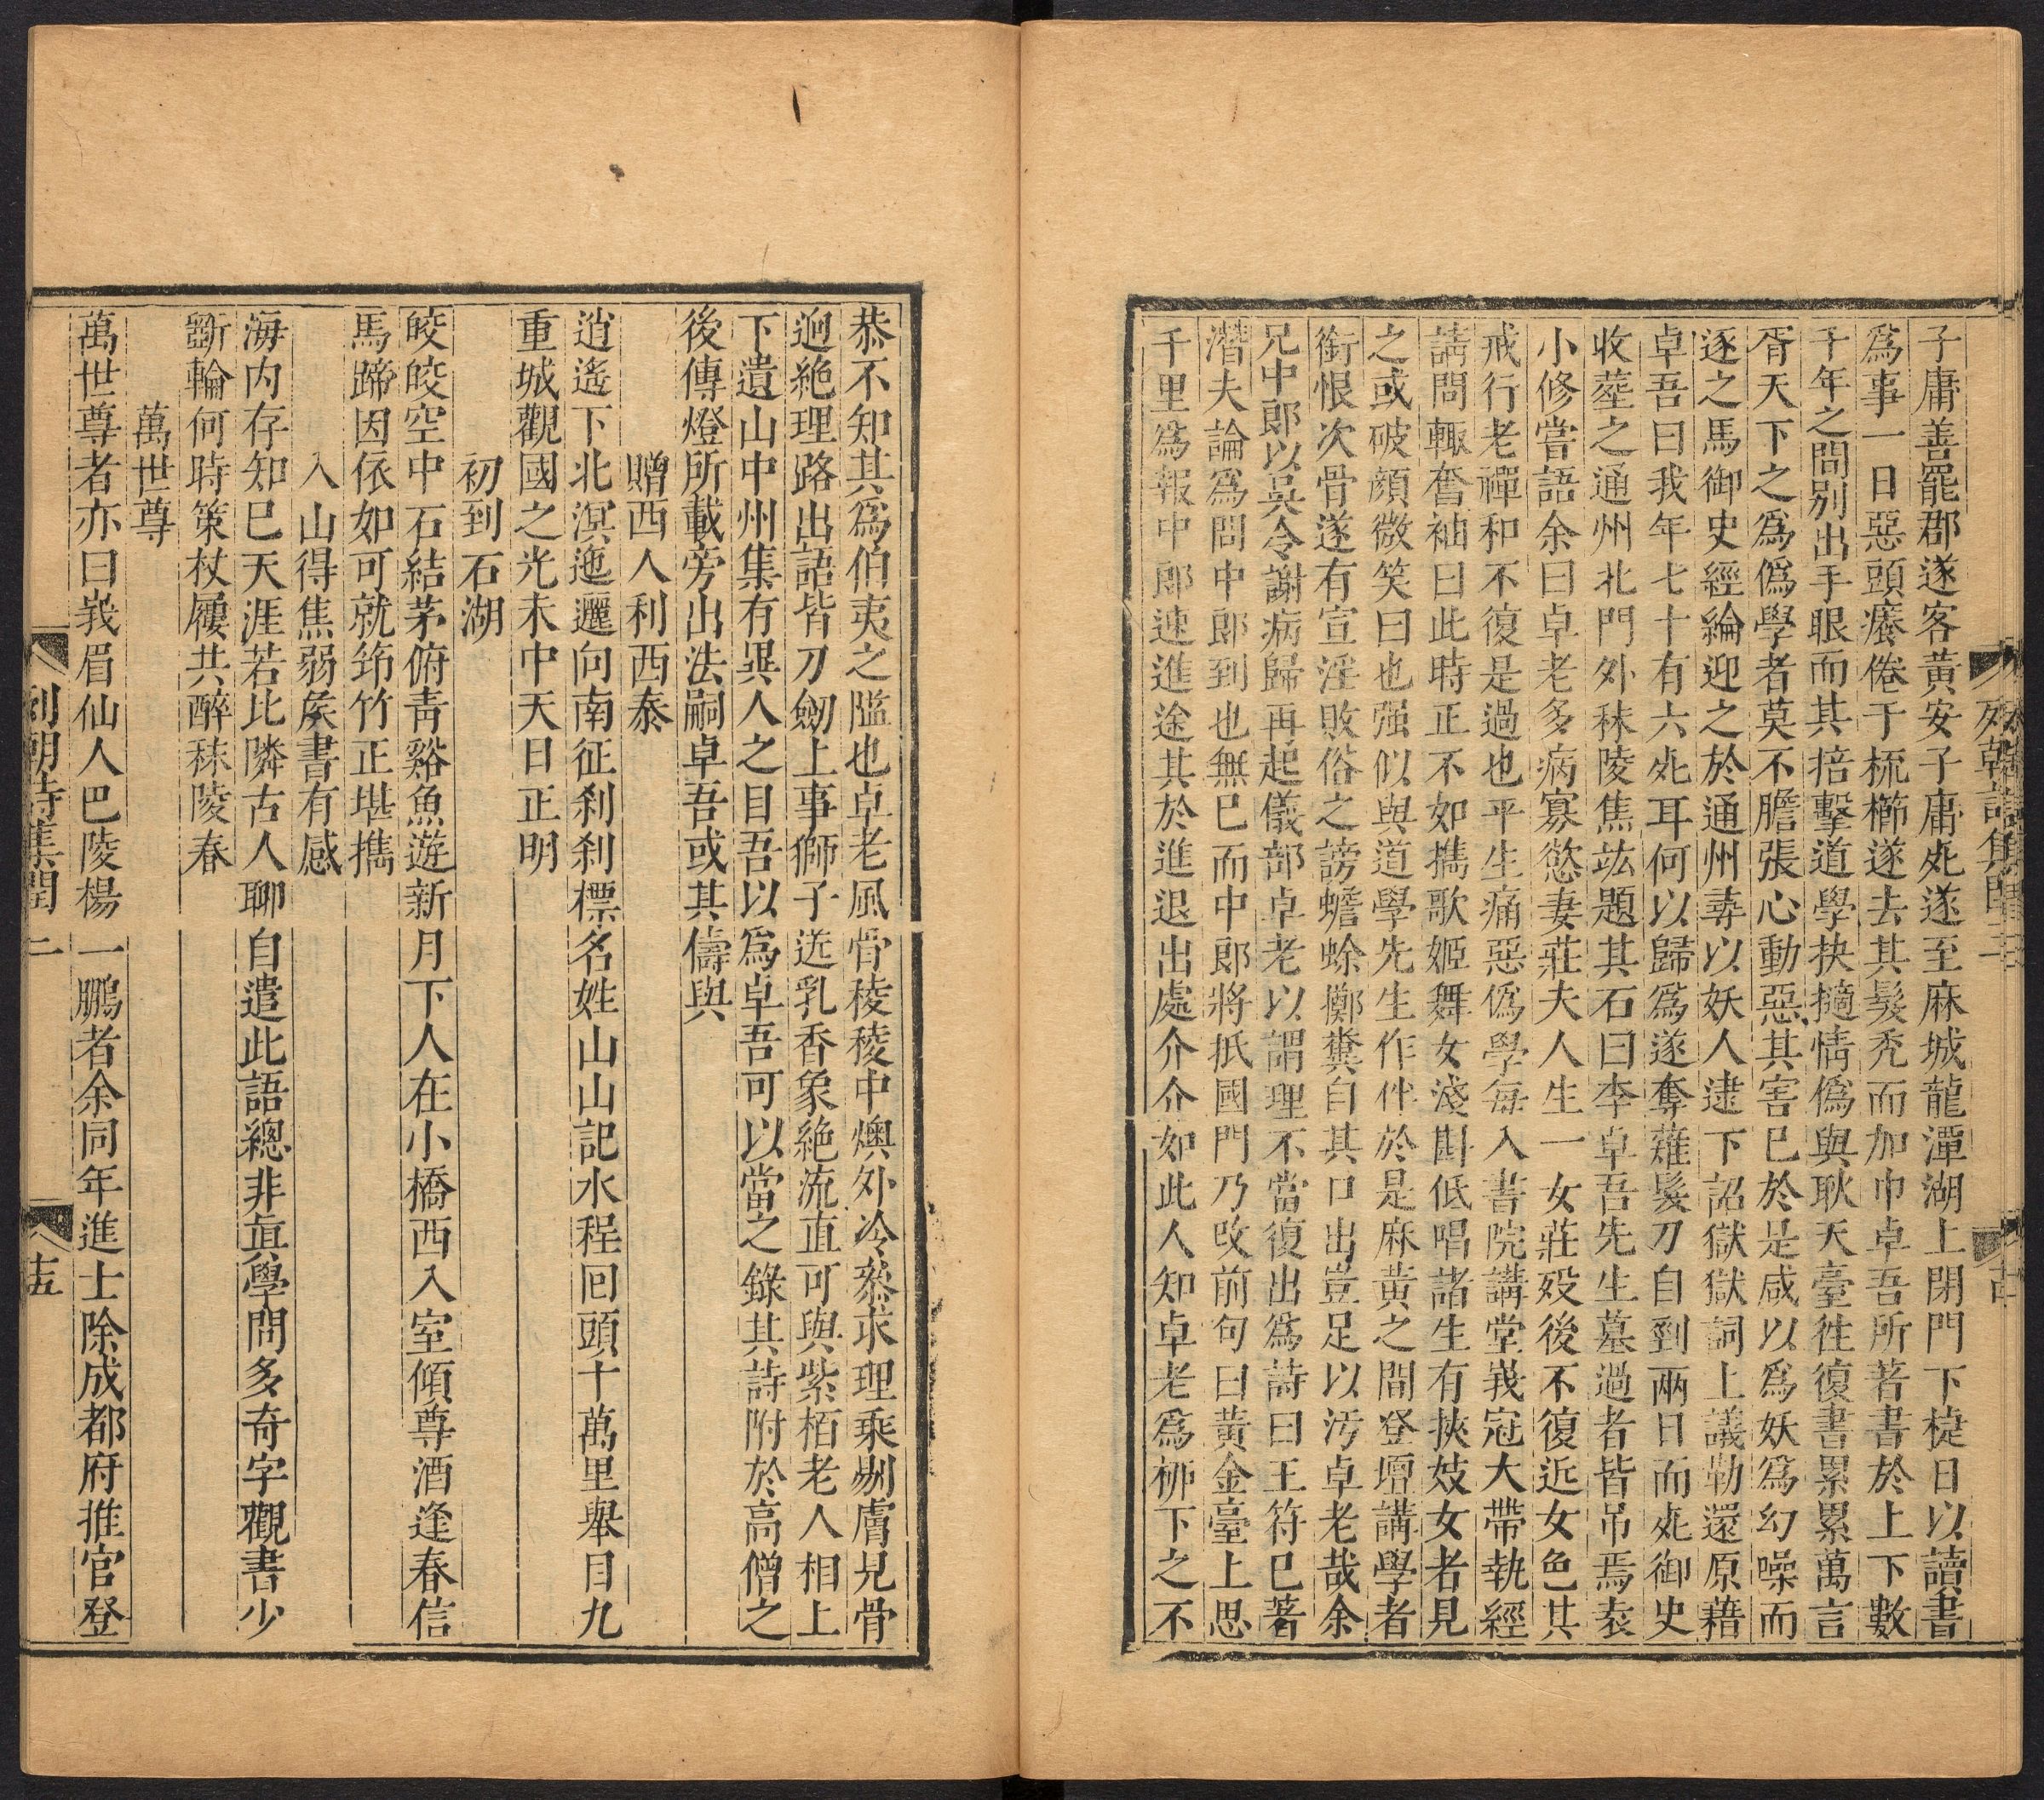 子庸善罷郡遂客黃安子庸死遂至麻城龍潭湖上閉門下楗日以讀書
爲事一日惡頭癢倦于梳櫛遂去其髮禿而加巾卓吾所著書於上下數
千年之間别出手眼而其掊擊道學抉擿情僞與耿天臺徃復書累累萬言
胥天下之爲僞學者莫不膽張心動惡其害已於是咸以爲妖爲幻噪而
逐之馬御史經綸迎之於通州尋以妖人逮下詔獄獄詞上議勒還原藉
卓吾曰我年七十有六死耳何以歸爲遂奪薙髮刀自剄兩日而死御史
收塟之通州北門外秣陵焦竑題其石曰李卓吾先生墓過者皆吊焉袁
小修嘗語余曰卓老多病寡慾妻莊夫人生一女莊歿後不復近女色其
戒行老禪和不復是過也平生痛惡僞學每入書院講堂峩冠大帶執經
請問輒奮袖曰此時正不如擕歌姬舞女淺斟低唱諸生有挾妓女者見
之或破顔微笑曰也强似與道學先生作伴於是麻黃之間登壇講學者
銜恨次骨遂有宣淫敗俗之謗蟾蜍擲糞自其口出豈足以汚卓老哉余
兄中郎以吳令謝病歸再起儀部卓老以謂理不當復出爲詩曰王符已著
潛夫論爲問中郎到也無已而中郎將抵國門乃改前句曰黃金臺上思
千里爲報中郎速進途其於進退出處介介如此人知卓老爲栁下之不
列朝詩集閏三
古
恭不知其爲伯夷之隘也卓老風骨稜稜中燠外冷叅求理乘剔膚見骨
逈絶理路出語皆刀劒上事獅子迸乳香象絶流直可與紫栢老人相上
下遺山中州集有異人之目吾以爲卓吾可以當之錄其詩附於高僧之
後傳燈所載旁出法嗣卓吾或其儔與
贈西人利西泰
逍遙下北溟迤邐向南征刹刹標名姓山山記水程囘頭十萬里舉目九
重城觀國之光未中天日正明
初到石湖
皎皎空中石結茅俯靑谿魚遊新月下人在小橋西入室傾尊酒逢春信
馬蹄因依如可就筇竹正堪擕
入山得焦弱矦書有感
海内存知已天涯若比隣古人聊自遣此語總非眞學問多奇字觀書少
斵輪何時策杖屨共醉秣陵春
萬世尊
萬世尊者亦曰峩眉仙人巴陵楊一鵬者余同年進士除成都府推官登
列朝詩集閏二
十五